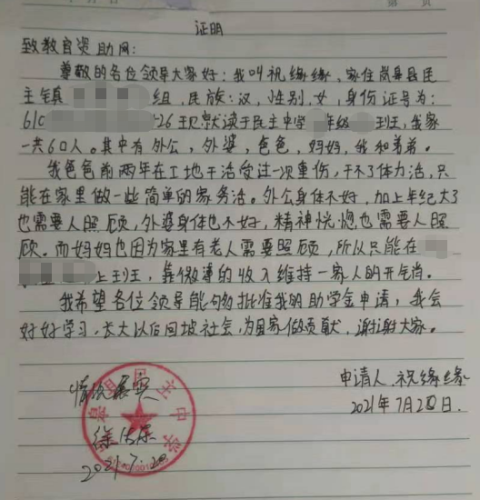 证明
致教育资助网:
尊敬的各位领导大家好:我叫祝缘缘,家住岚皋县民
主镇 组,民族:汉,性别,女,身份证号为:
610 26现就读于民主中学 年级 班,我家
一共有6口人。其中有外公,外婆,爸爸,妈妈,我和弟弟。
我爸爸前两年在工地干活受过一次重伤,干不了体力活,只
能在家里做一些简单的家务活。外公身体不好,加上年纪大了
也需要人照顾,外婆身体也不好,精神恍惚也需要人照
顾。而妈妈也因为家里有老人需要照顾,所以只能在
上班,靠微薄的收入维持一家人的开销。
我希望各位领导能够批准我的助学金申请,我会
好好学习,长大以后回报社会,为国家做贡献,谢谢大家。
情况属实
申请人:祝缘缘
2021年7月20日.
2021.7.20